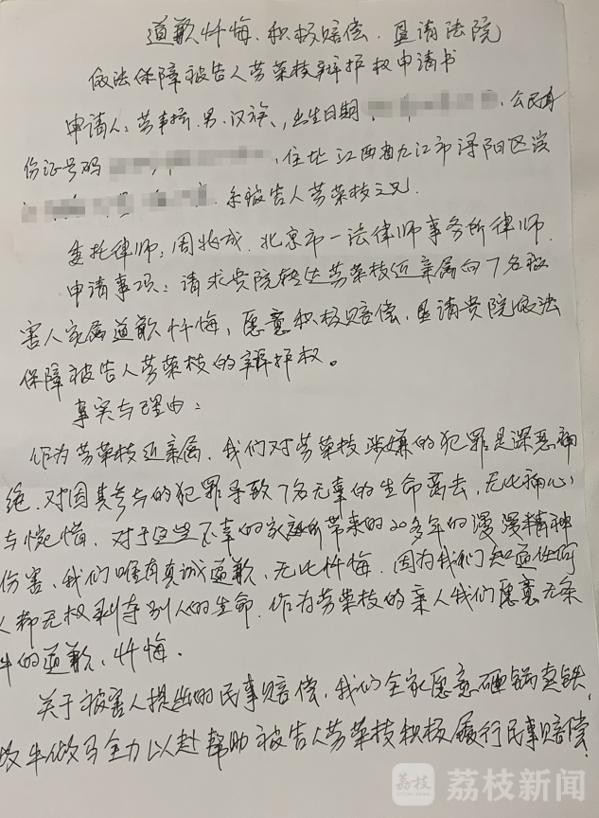 道歉忏悔、积极赔偿、恳请法院
依法保障被告人劳荣枝辩护权申请书
申请人:劳声桥、男、汉族、出生日期 公民身
份证号码 、住址江西省九江市浔阳区滨
系被告人劳荣枝之兄.
委托律师:周兆成、北京市一法律师事务所律师.
申请事项:请求贵院转达劳荣枝近亲属向7名被
害人家属道歉忏悔,愿意积极赔偿,恳请贵院依法
保障被告人劳荣枝的辩护权。
事实与理由:
作为劳荣枝近亲属,我们对劳荣枝涉嫌的犯罪是深恶痛
绝.对因其参与的犯罪导致7名无辜的生命离去,无比痛心
与惋惜.对于这些不幸的家庭所带来的20多年的漫漫精神
伤害、我们唯有真诚道歉、无比忏悔.因为我们知道任何
人都无权剥夺别人的生命.作为劳荣枝的亲人我们愿意无条
件的道歉、忏悔.
关于被害人提出的民事赔偿,我们全家愿意砸锅卖铁、
做牛做马全力以赴帮助被告人劳荣枝积极履行民事赔偿
荔枝新闻